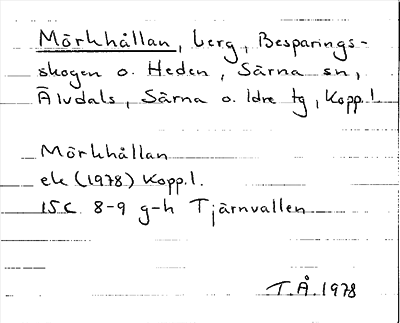 Mörkhållan, berg, Besparings-
skogen o. Heden, Särna sn,
Älvdals, Särna o. Idre tg, Kopp.l.
Mörkhållan
ek (1978) Kopp.l.
15C 8-9 g-h Tjärnvallen
T.Å. 1978